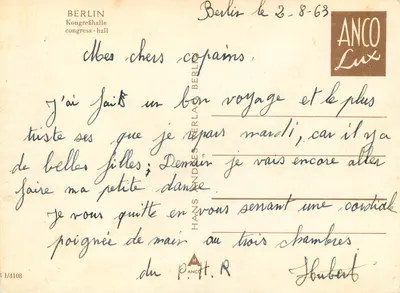 BERLIN
Kongreßhalle
congress-hall
Berlin le 2-8-63
ANCO
Lux
Mes chers copains.
J'ai fait un bon voyage et le plus
triste ses que je repars mardi, car il y a
de belles filles; Demain je vais encore aller
faire ma petite danse.
je vous quitte en vous serrant une cordiale
poignée de main au trois chambres.
du P.H.R
Hubert
HANS ANDRES VERLAG BERLIN
ANCO
1/4108